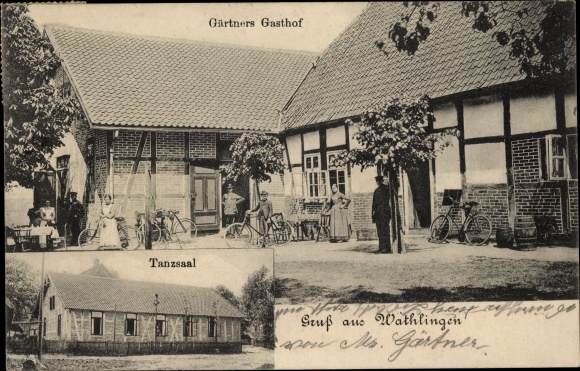 Gärtners Gasthof
Tanzsaal
Gruß aus Wathlingen
von Mr. Gärtner.